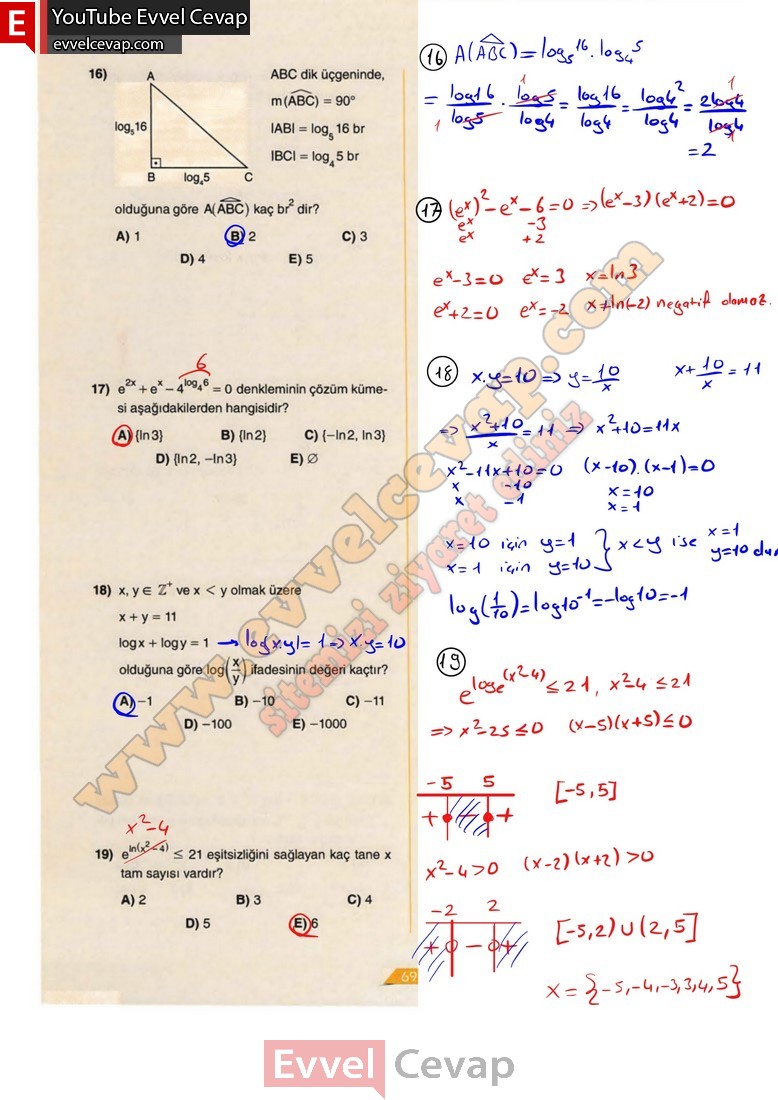 E YouTube Evvel Cevap
evvelcevap.com
16) A
log₅16
B log₄5 C
ABC dik üçgeninde,
m(ABC) = 90°
IABI = log₅ 16 br
IBCI = log₄ 5 br
olduğuna göre A(ABC) kaç br² dir?
A) 1 B) 2 C) 3
D) 4 E) 5
6
17) e^2x + e^x – 4^log₄6 = 0 denkleminin çözüm küme-
si aşağıdakilerden hangisidir?
A) {ln3} B) {ln2} C) {–ln2, ln3}
D) {ln2, –ln3} E) ∅
18) x, y ∈ Z⁺ ve x < y olmak üzere
x + y = 11
logx + logy = 1 → log(x.y) = 1 ⇒ x.y = 10
olduğuna göre log(x/y) ifadesinin değeri kaçtır?
A) –1 B) –10 C) –11
D) –100 E) –1000
x²-4
19) e^ln(x² – 4) ≤ 21 eşitsizliğini sağlayan kaç tane x
tam sayısı vardır?
A) 2 B) 3 C) 4
D) 5 E) 6
69
16 A(ABC) = log₅16 . log₄5
= log16/log5 . log5/log4 = log16/log4 = log4²/log4 = 2log4/log4
1 1 1 1
= 2
17 (e^x)² - e^x - 6 = 0 ⇒ (e^x-3)(e^x+2) = 0
e^x -3
e^x +2
e^x-3=0 e^x=3 x=ln3
e^x+2=0 e^x=-2 x≠ln(-2) negatif olamaz.
18 x.y=10 ⇒ y=10/x x+10/x=11
⇒ x²+10/x = 11 ⇒ x²+10=11x
x²-11x+10=0 (x-10).(x-1)=0
x -10 x=10
x -1 x=1
x=10 için y=1
x=1 için y=10 } x<y ise x=1
y=10
log(1/10) = log10⁻¹ = -log10 = -1
19
e^loge(x²-4) ≤ 21, x²-4 ≤ 21
⇒ x²-25 ≤ 0 (x-5)(x+5) ≤ 0
-5 5
+ - + [-5,5]
x²-4>0 (x-2)(x+2)>0
-2 2
+ - + [-5,2) ∪ (2,5]
x = {-5,-4,-3,3,4,5}
www.evvelcevap.com
sitemizi ziyaret ediniz
Evvel Cevap